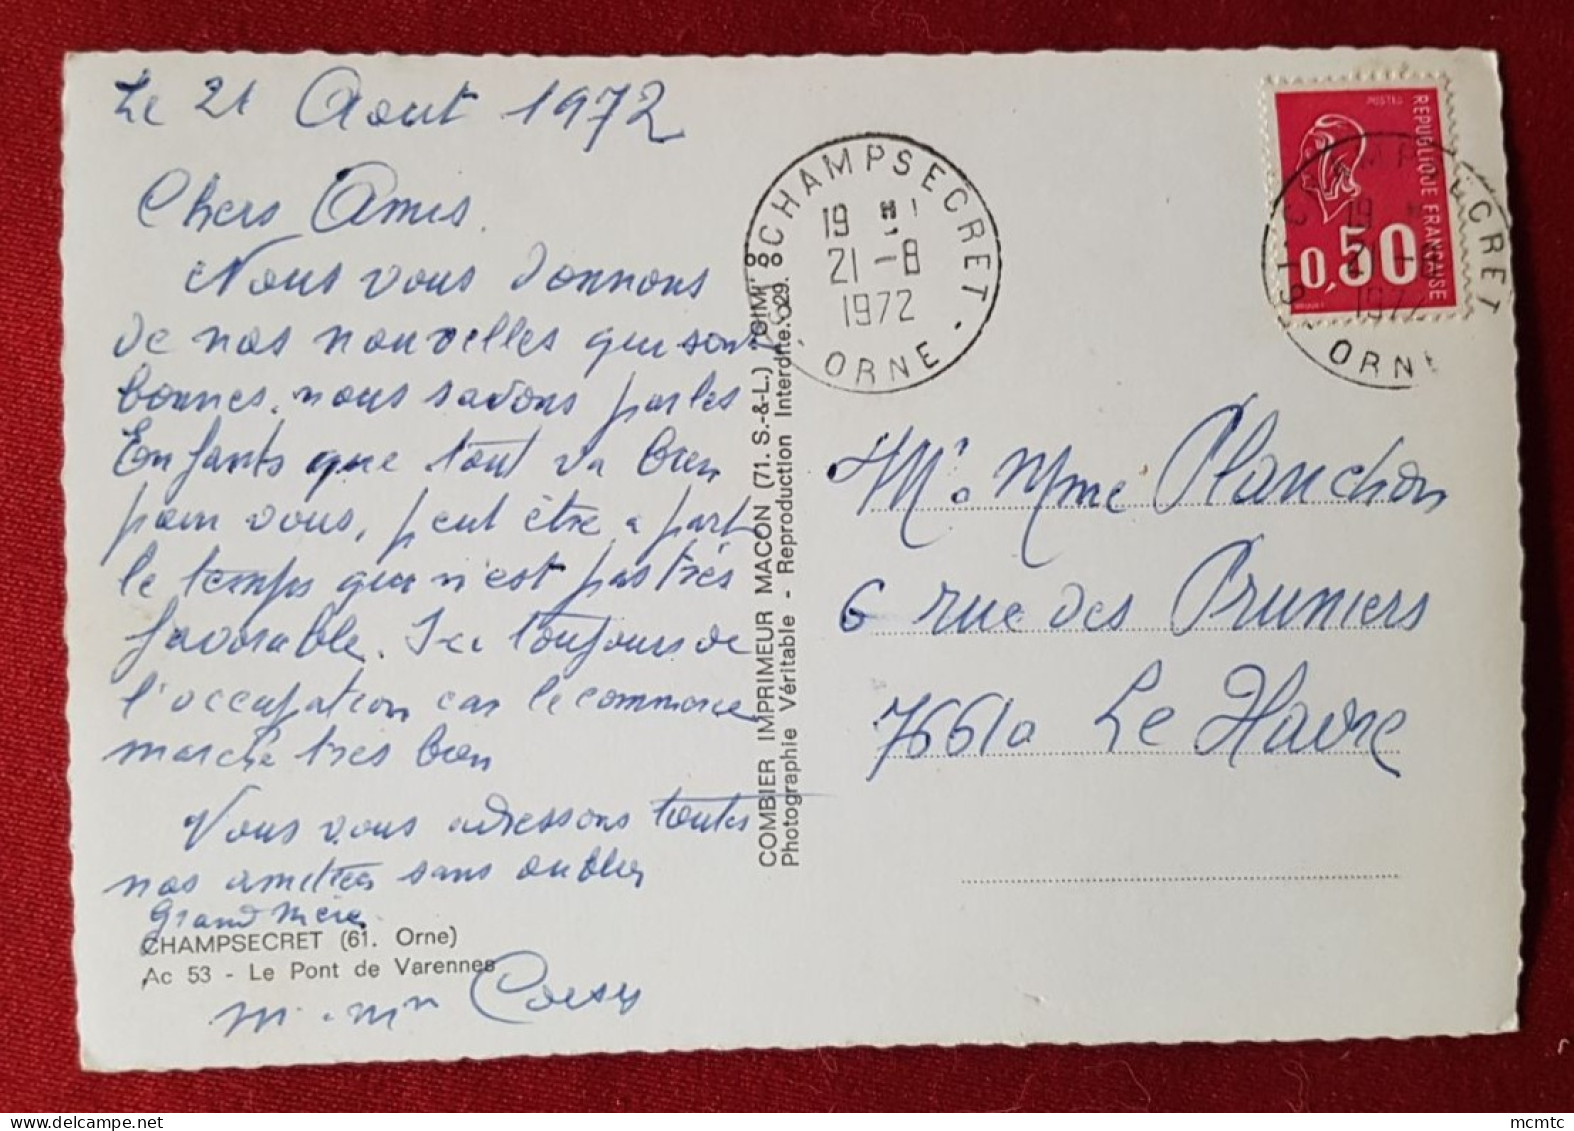 Le 21 Aout 1972
Chers Amis.
Nous vous donnons
de nos nouvelles qui sont
bonnes. nous savons par les
Enfants que tout va bien
pour vous, peut être a part
le temps qui n'est pas très
favorable. Ici toujours de
l'occupation car le commerce
marche tres bien
Vous vous adressons toutes
nos amitiés sans oublier
Grand Mère
CHAMPSECRET (61. Orne)
Ac 53 - Le Pont de Varennes
M. Mm
COMBIER IMPRIMEUR MACON (71. S.-&-L.) "CIM"
Photographie Véritable - Reproduction Interdite.
CHAMPSECRET
19 H
21-8
1972
ORNE
POSTES
REPUBLIQUE FRANÇAISE
0,50
19
21-8
1972
ORNE
M. Mme Planchon
6 rue des Pruniers
76610 Le Havre
mcmtc